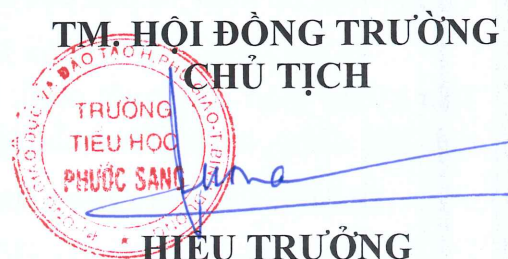 TM. HỘI ĐỒNG TRƯỜNG
CHỦ TỊCH
TRƯỜNG
TIỂU HỌC
PHƯỚC SANG
HIỆU TRƯỞNG